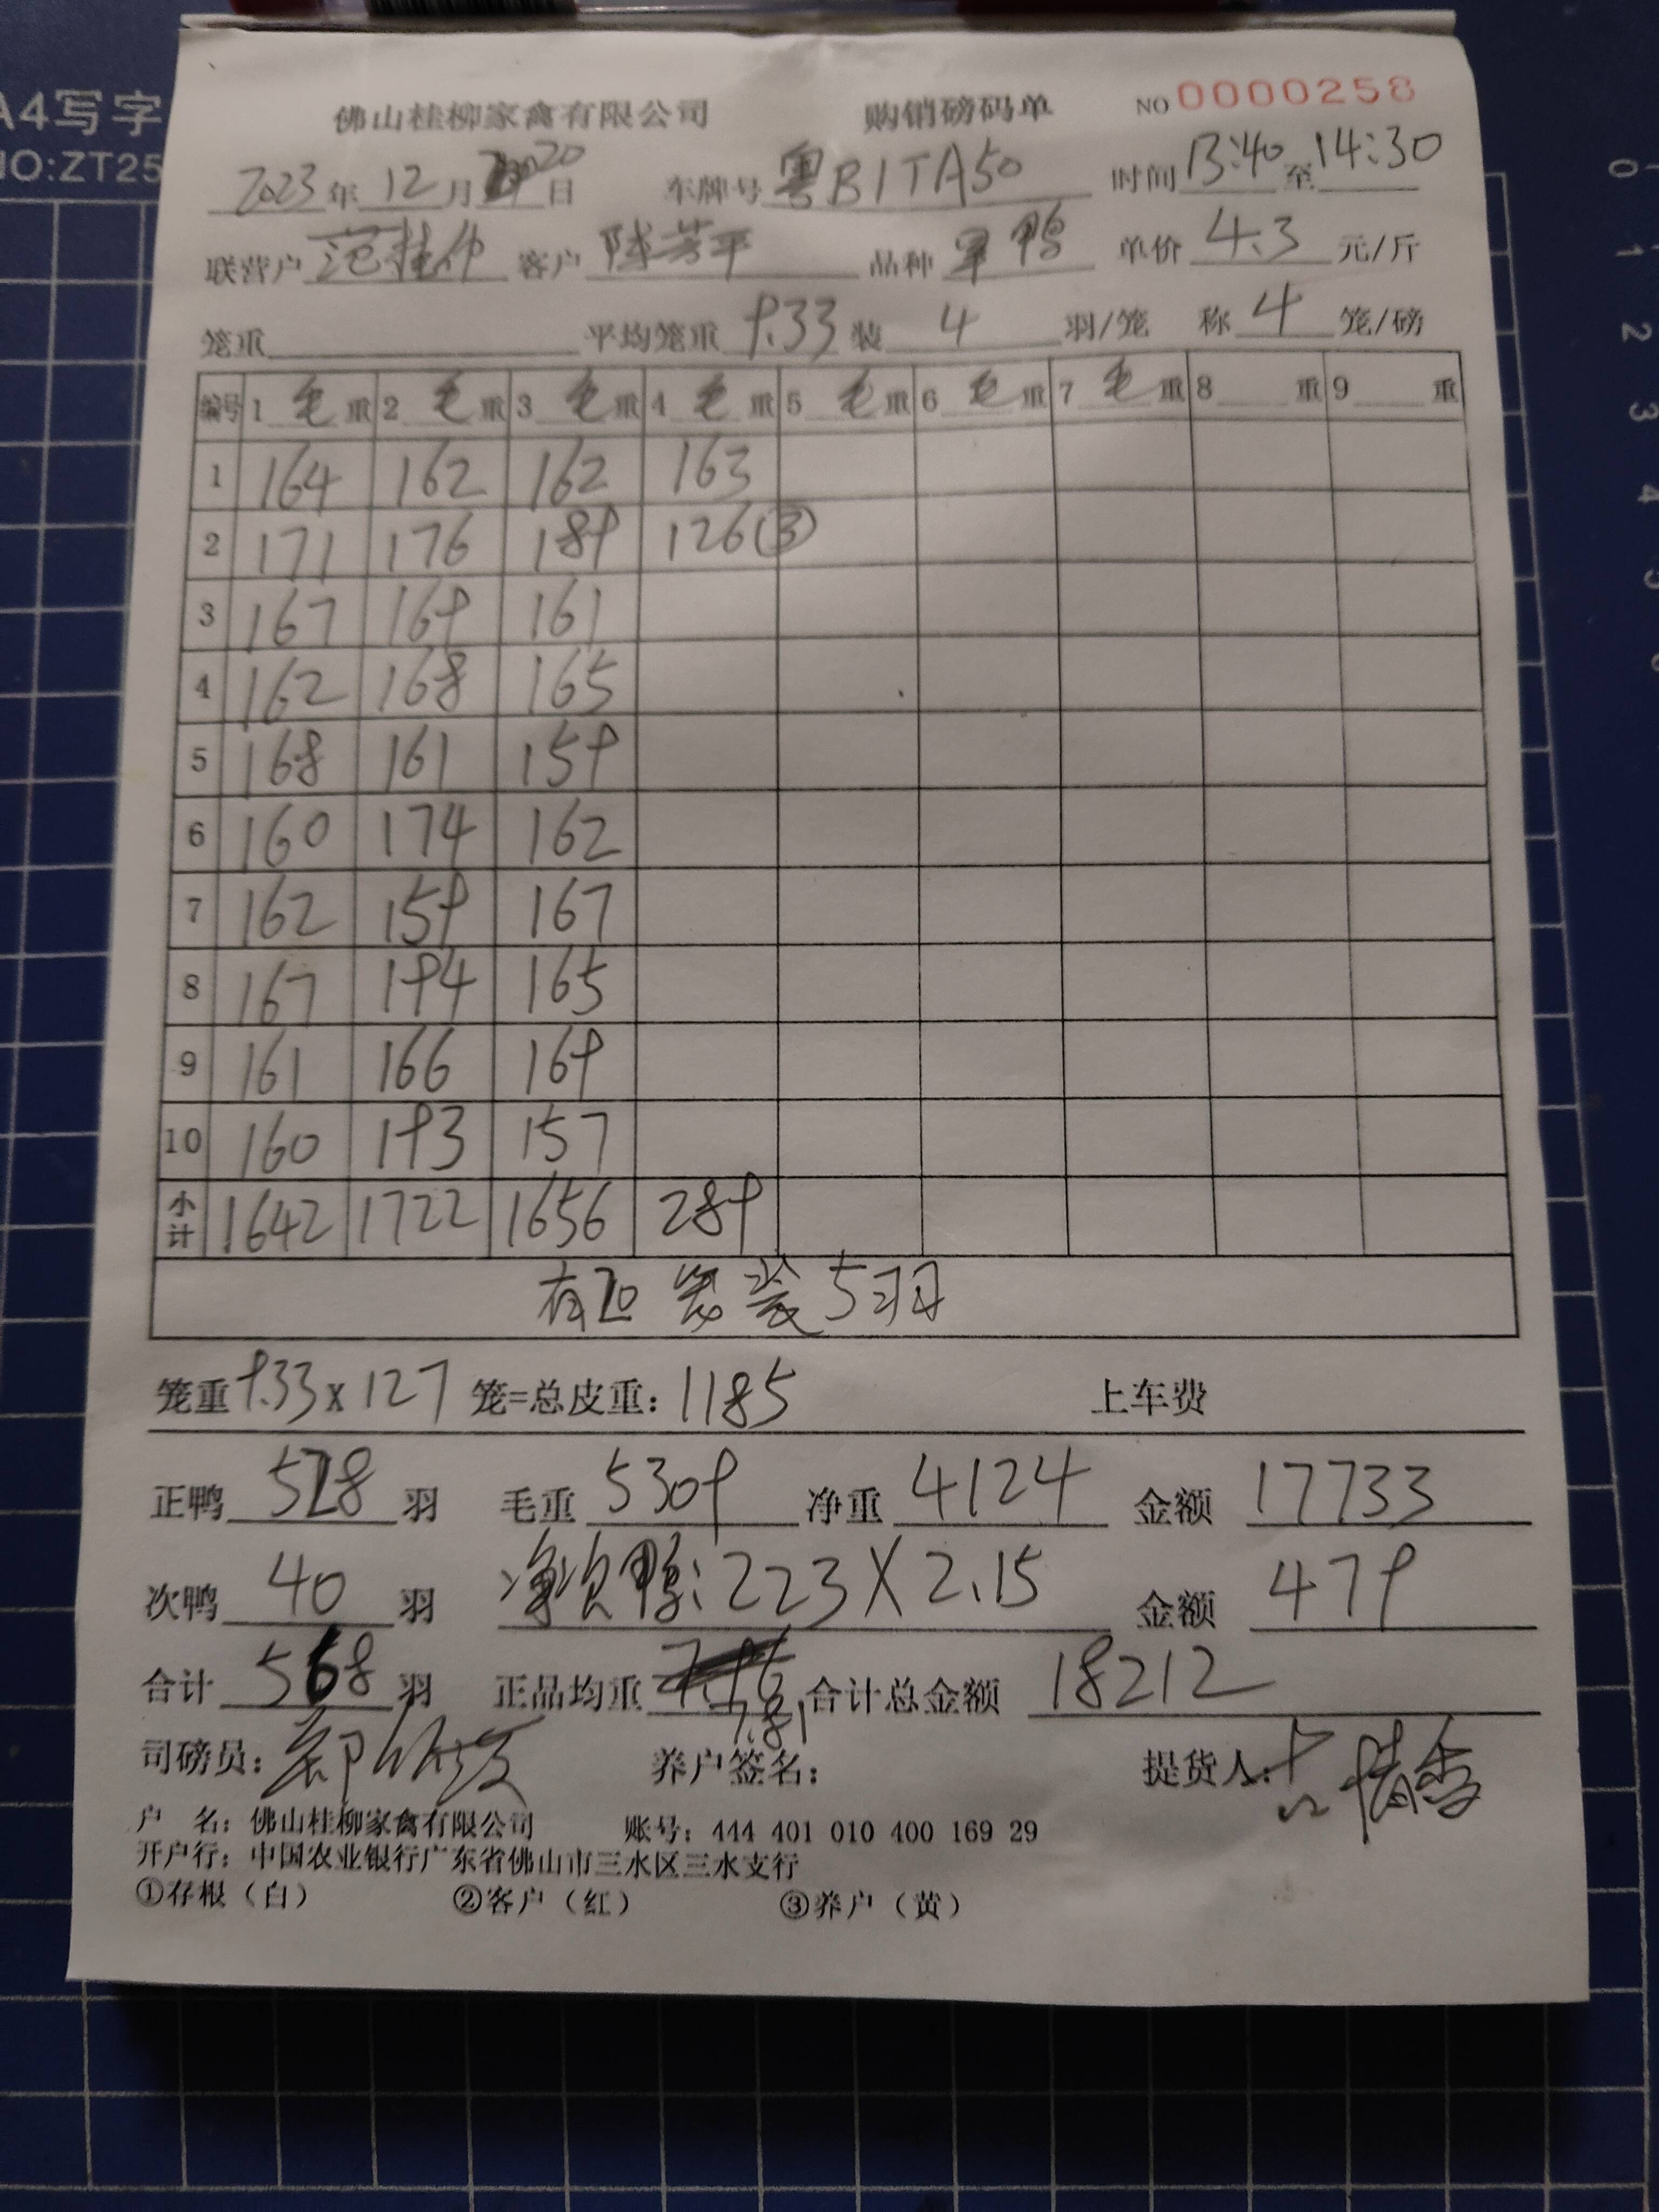 A4写字
NO:ZT25
佛山桂柳家禽有限公司 购销磅码单 NO 0000258
2023年12月20日 车牌号 粤B1TA50 时间 13:40 至 14:30
联营户 范桂仲 客户 陈芳平 品种 鸭 单价 4.3 元/斤
笼重 平均笼重 9.33 装 4 羽/笼 称 4 笼/磅
编号 1 毛重 2 毛重 3 毛重 4 毛重 5 毛重 6 毛重 7 毛重 8 重 9 重
1 164 162 162 163
2 171 176 189 126③
3 167 169 161
4 162 168 165
5 168 161 159
6 160 174 162
7 162 159 167
8 167 194 165
9 161 166 169
10 160 193 157
小计 1642 1722 1656 289
有20笼装5羽
笼重 9.33 x 127 笼=总皮重: 1185 上车费
正鸭 528 羽 毛重 5309 净重 4124 金额 17733
次鸭 40 羽 净次鸭: 223 X 2.15 金额 479
合计 568 羽 正品均重 7.81 合计总金额 18212
司磅员: 养户签名: 提货人:
户 名: 佛山桂柳家禽有限公司 账号: 444 401 010 400 169 29
开户行: 中国农业银行广东省佛山市三水区三水支行
①存根（白） ②客户（红） ③养户（黄）
0
1
2
3
4
5